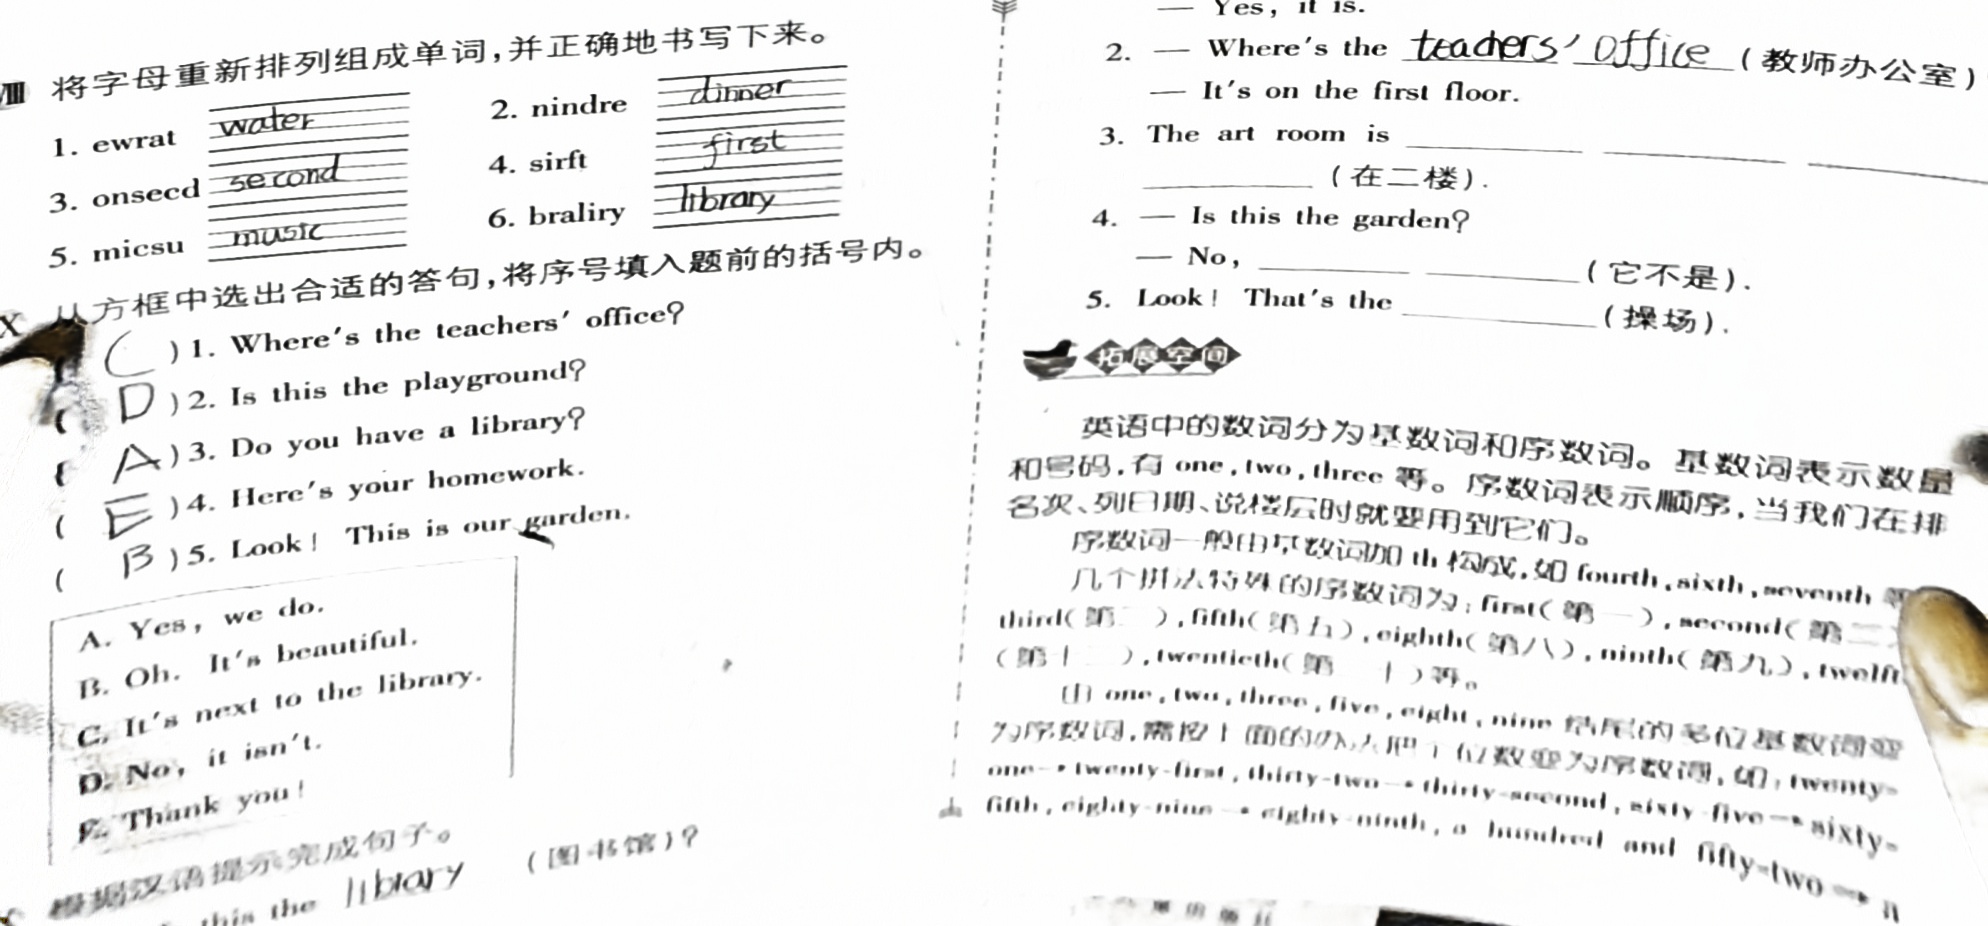 Ⅷ 将字母重新排列组成单词,并正确地书写下来。
1. ewrat water 2. nindre dinner
3. onsecd second 4. sirft first
5. micsu music 6. braliry library
从方框中选出合适的答句,将序号填入题前的括号内。
( C ) 1. Where's the teachers' office?
( D ) 2. Is this the playground?
( A ) 3. Do you have a library?
( E ) 4. Here's your homework.
( B ) 5. Look! This is our garden.
A. Yes, we do.
B. Oh. It's beautiful.
C. It's next to the library.
D. No, it isn't.
E. Thank you!
根据汉语提示完成句子。
this the library (图书馆)?
— Yes, it is.
2. — Where's the teachers' office (教师办公室)
— It's on the first floor.
3. The art room is
(在二楼).
4. — Is this the garden?
— No, (它不是).
5. Look! That's the (操场).
拓展空间
英语中的数词分为基数词和序数词。基数词表示数量
和号码,有 one,two,three 等。序数词表示顺序,当我们在排
名次、列日期、说楼层时就要用到它们。
序数词一般由基数词加 th 构成,如 fourth,sixth,seventh 等
几个拼法特殊的序数词为:first(第一),second(第二)
third(第三),fifth(第五),eighth(第八),ninth(第九),twelft
(第十二),twentieth(第二十)等。
由 one,two,three,five,eight,nine 结尾的多位基数词变
为序数词,需按上面的办法把个位数变为序数词,如:twenty-
one→twenty-first,thirty-two→thirty-second,sixty-five→sixty-
fifth,eighty-nine→eighty-ninth,a hundred and fifty-two→a